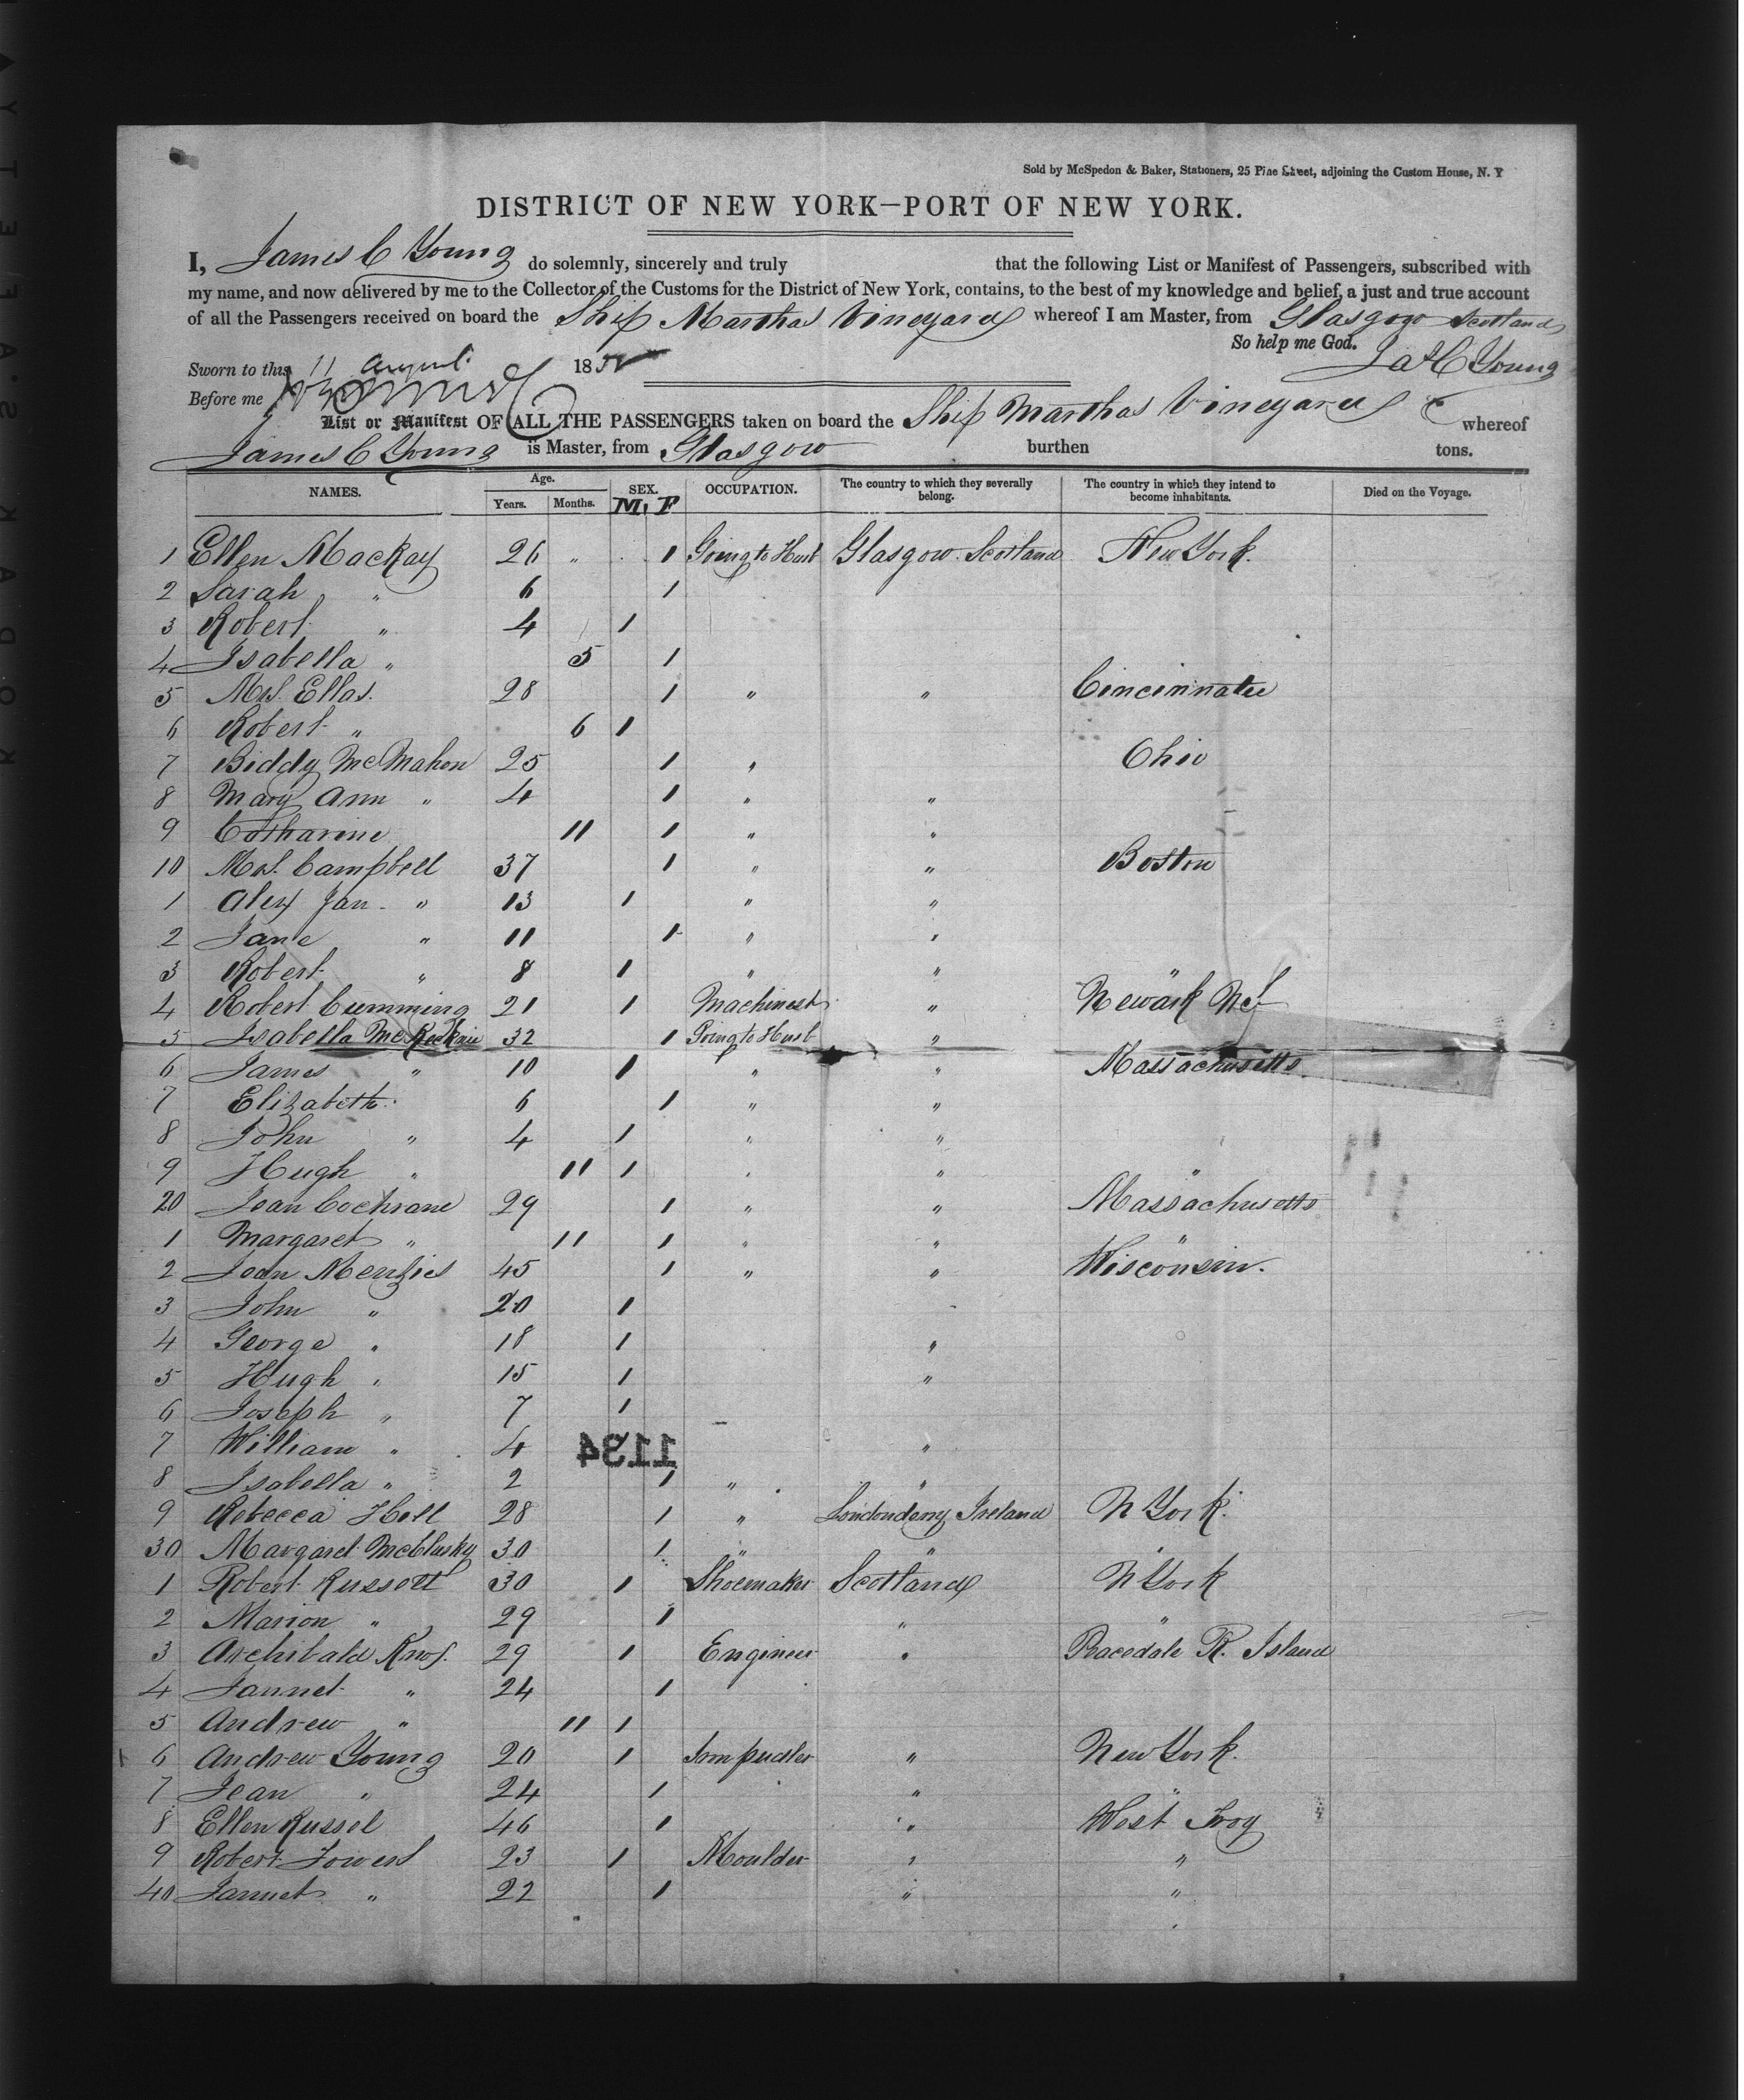 Sold by McSpedon & Baker, Stationers, 25 Pine Street, adjoining the Custom House, N. Y
DISTRICT OF NEW YORK—PORT OF NEW YORK.
I, James C Young do solemnly, sincerely and truly that the following List or Manifest of Passengers, subscribed with
my name, and now delivered by me to the Collector of the Customs for the District of New York, contains, to the best of my knowledge and belief, a just and true account
of all the Passengers received on board the Ship Marthas Vineyard whereof I am Master, from Glasgow Scotland
So help me God.
Sworn to this 11 August 185 Jas C Young
Before me
List or Manifest OF ALL THE PASSENGERS taken on board the Ship Marthas Vineyard whereof
James C Young is Master, from Glasgow burthen tons.
NAMES. Age. Years. Months. SEX. M. F OCCUPATION. The country to which they severally belong. The country in which they intend to become inhabitants. Died on the Voyage.
1 Ellen Mackay 26 " 1 Going to Husb Glasgow Scotland New York.
2 Sarah " 6 1
3 Robert " 4 1
4 Isabella " 5 1
5 Mrs. Ellas. 28 1 " " Cincinnatee
6 Robert " 6 1
7 Biddy McMahon 25 1 " Ohio
8 Mary Ann " 4 1 " "
9 Catharine 11 1 " "
10 Mrs. Campbell 37 1 " " Boston
1 Alex Jan - " 13 1 " "
2 Jane " 11 1 " "
3 Robert " 8 1 " " "
4 Robert Cumming 21 1 Machinest " Newark NJ
5 Isabella McKecknie 32 1 Going to Husb "
6 James " 10 1 " " Massachusetts
7 Elizabeth 6 1 " "
8 John " 4 1 " "
9 Hugh " 11 1 " " "
20 Jean Cochrane 29 1 " " Massachusetts
1 Margaret " 11 1 " " "
2 Jean Menzies 45 1 " " Wisconsin.
3 John " 20 1 "
4 George " 18 1 "
5 Hugh " 15 1 "
6 Joseph " 7 1
7 William " 4 1 "
1194
8 Isabella " 2 1 " "
9 Rebecca Holl 28 1 " Londonderry Ireland N York
30 Margaret McClusky 30 1 " " "
1 Robert Russell 30 1 Shoemaker Scotland N York
2 Marion " 29 1 " "
3 Archibald Knox 29 1 Engineer " Peacedale R. Island
4 Jannet " 24 1
5 Andrew " 11 1
6 Andrew Young 20 1 Iron pudler " New York.
7 Jean " 24 1 " "
8 Ellen Russel 46 1 " West Troy
9 Robert Towers 23 1 Moulder " "
40 Jannet " 22 1 " "